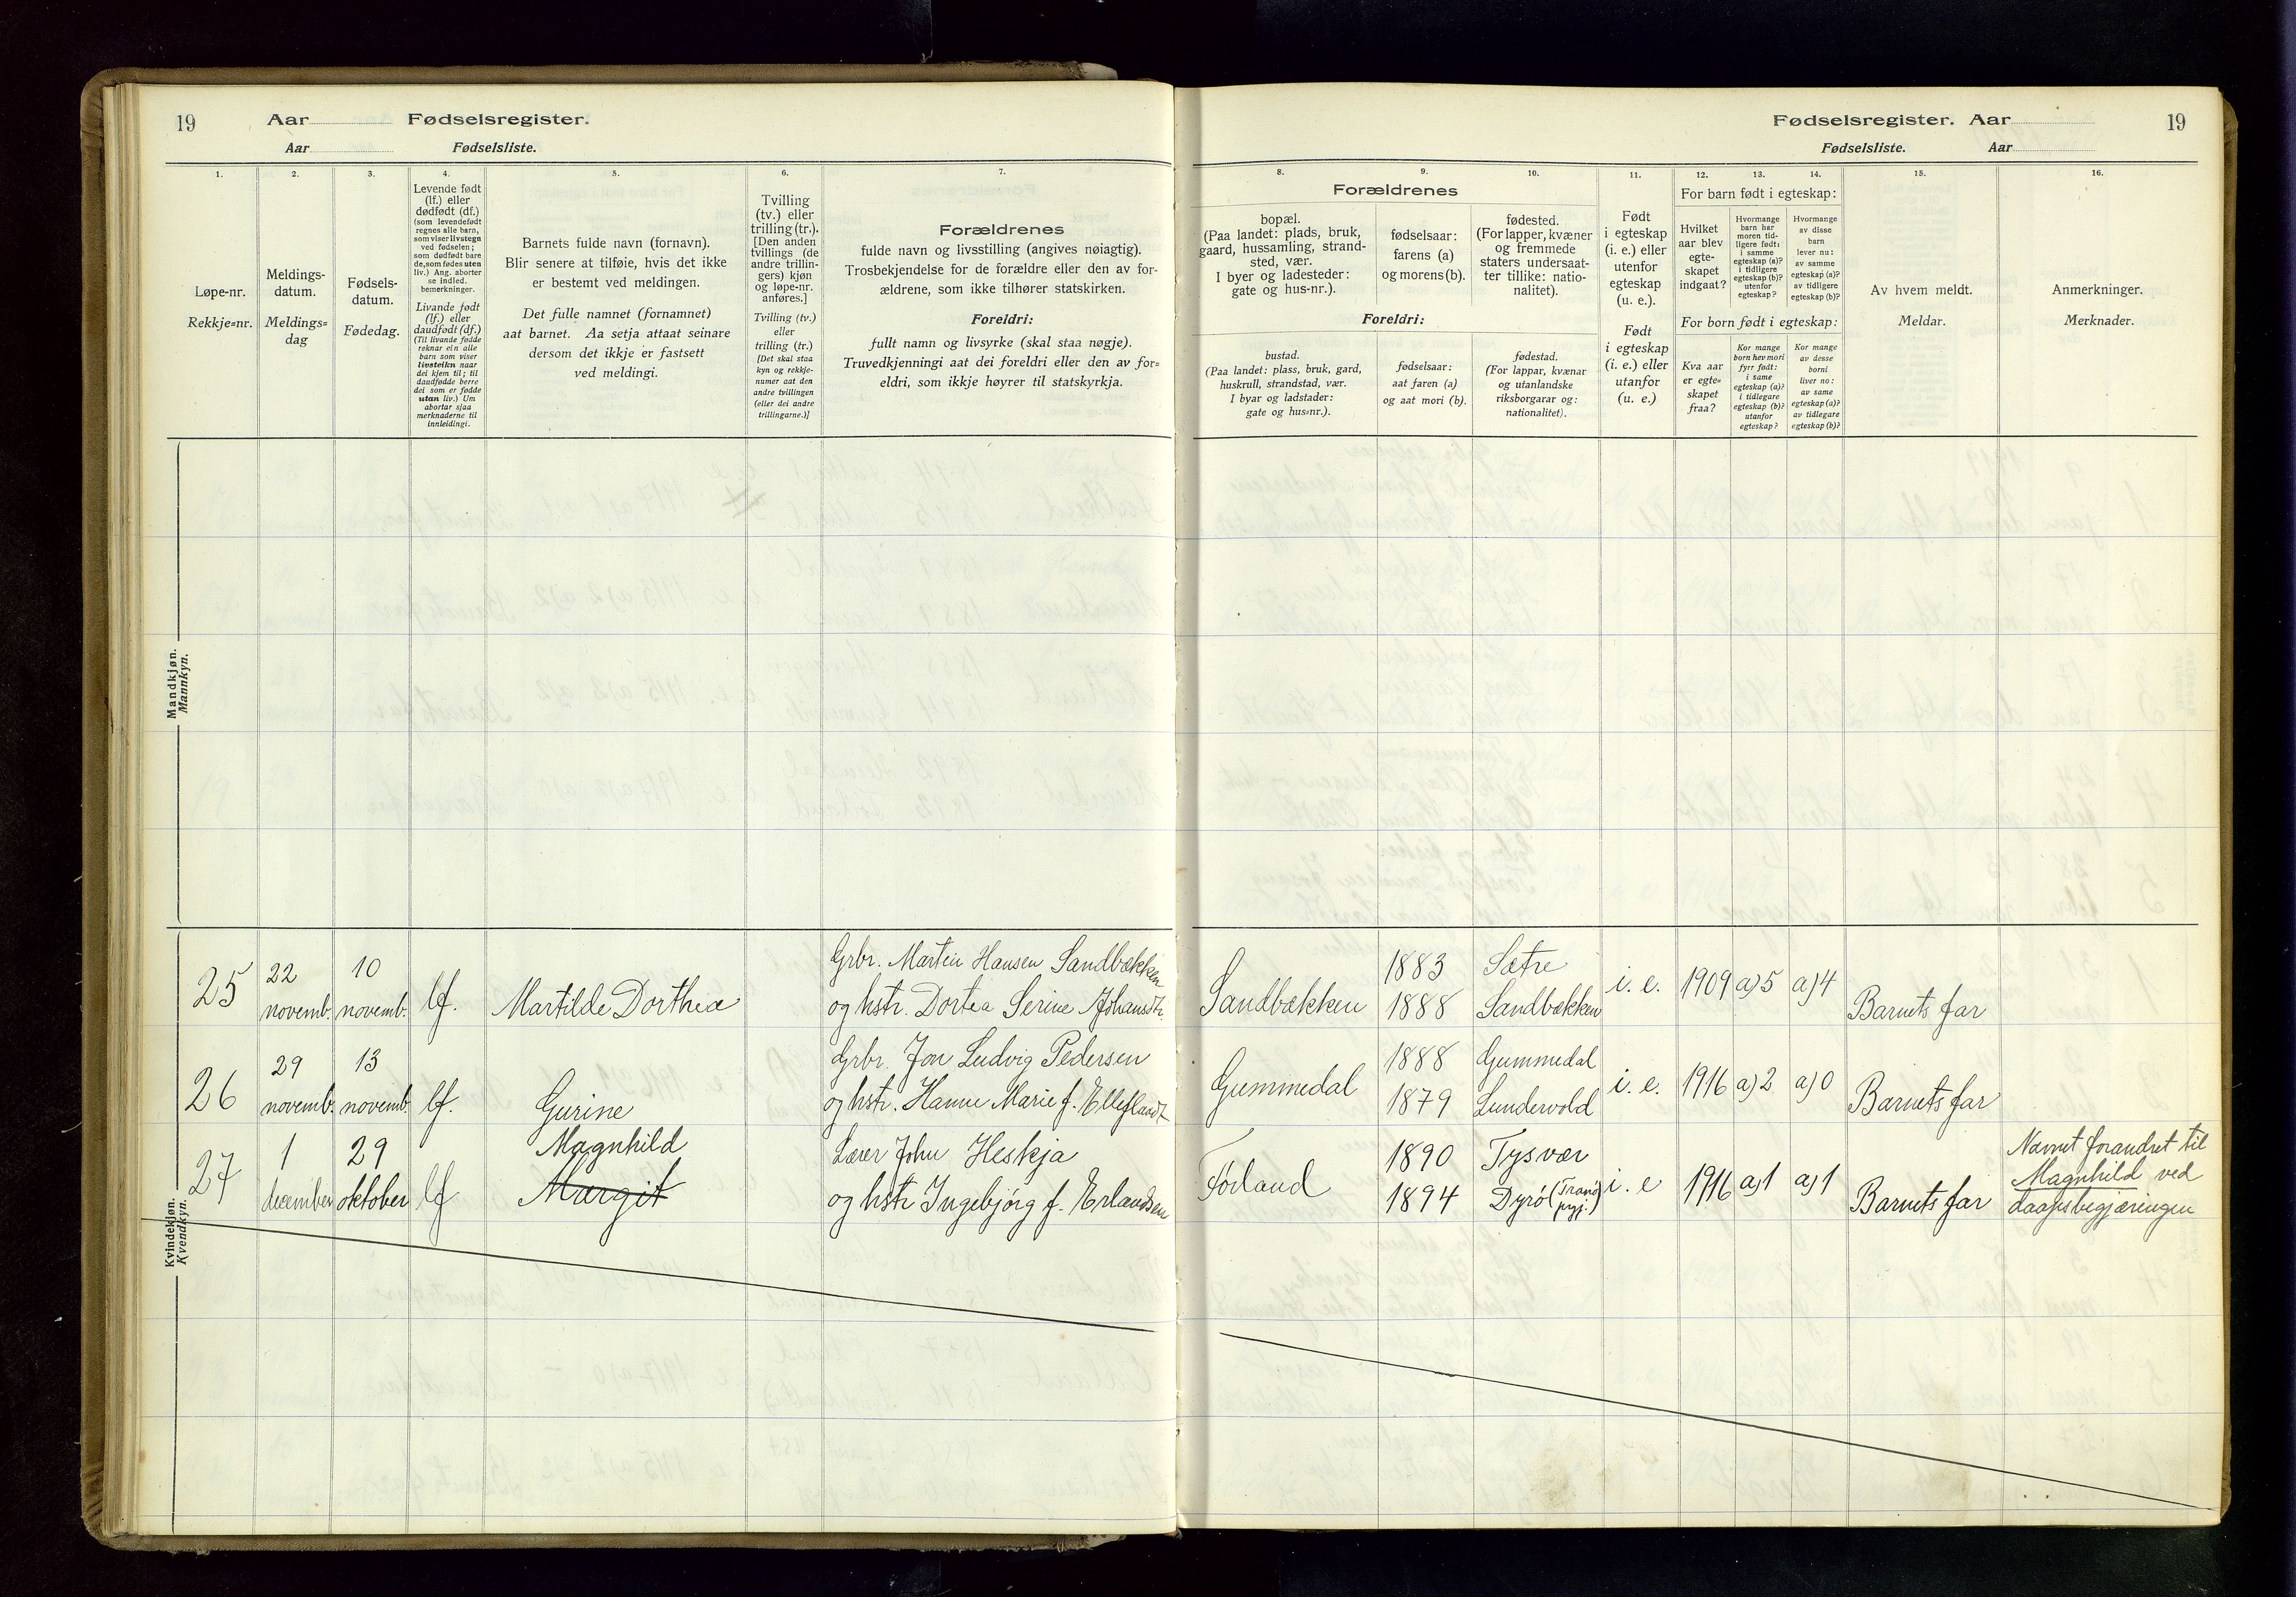 19
Aar
Fødselsregister.
Aar
Fødselsliste.
1.
Løpe-nr.
Rekkje=nr.
2.
Meldings-
datum.
Meldings=
dag
3.
Fødsels-
datum.
Fødedag.
4.
Levende født
(lf.) eller
dødfødt (df.)
(som levendefødt
regnes alle barn,
som viser livstegn
ved fødselen;
som dødfødt bare
de, som fødes uten
liv.) Ang. aborter
se indled.
bemerkninger.
Livande født
(lf.) eller
daudfødt (df.)
(Til livande fødde
reknar ein alle
barn som viser
livsteikn naar
dei kjem til; til
daudfødde berre
dei som er fødde
utan liv.) Um
abortar sjaa
merknaderne til
innleidingi.
5.
Barnets fulde navn (fornavn).
Blir senere at tilføie, hvis det ikke
er bestemt ved meldingen.
Det fulle namnet (fornamnet)
aat barnet. Aa setja attaat seinare
dersom det ikkje er fastsett
ved meldingi.
6.
Tvilling
(tv.) eller
trilling (tr.).
[Den anden
tvillings (de
andre trillin-
gers) kjøn
og løpe-nr.
anføres.]
Tvilling (tv.)
eller
trilling (tr.)
[Det skal staa
kyn og rekkje-
numer aat den
andre tvillingen
(eller dei andre
trillingarne.)]
7.
Forældrenes
fulde navn og livsstilling (angives nøiagtig).
Trosbekjendelse for de forældre eller den av for-
ældrene, som ikke tilhører statskirken.
Foreldri:
fullt namn og livsyrke (skal staa nøgje).
Truvedkjenningi aat dei foreldri eller den av for=
eldri, som ikkje høyrer til statskyrkja.
Mandkjøn.
Mannkyn.
25
22
novemb.
10
novemb.
lf.
Martilde Dorthea
Grbr. Martin Hansen Sandbækken
og hstr. Dortea Serine Johansdtr.
26
29
novemb.
13
novemb.
lf.
Gurine
Grbr. Jon Ludvig Pedersen
og hstr. Hanne Marie f.
27
1
december
29
oktober
lf
Magnhild
Margit
Lærer John Heskja
og hstr Ingebjørg f. Erlandsen
Kvindekjøn.
Kvendkyn.
Fødselsregister. Aar
19
Fødselsliste.
Aar
8.
9.
10.
Forældrenes
bopæl.
(Paa landet: plads, bruk,
gaard, hussamling, strand-
sted, vær.
I byer og ladesteder:
gate og hus-nr.).
fødselsaar:
farens (a)
og morens (b).
fødested.
(For lapper, kvæner
og fremmede
staters undersaat-
ter tillike: natio-
nalitet).
Foreldri:
bustad.
(Paa landet: plass, bruk, gard,
huskrull, strandstad, vær.
I byar og ladstader:
gate og hus=nr.).
fødselsaar:
aat faren (a)
og aat mori (b).
fødestad.
(For lappar, kvænar
og utanlandske
riksborgarar og:
nationalitet).
11.
Født
i egteskap
(i. e.) eller
utenfor
egteskap
(u. e.).
Født
i egteskap
(i. e.) eller
utanfor
(u. e.)
12.
13.
14.
For barn født i egteskap:
Hvilket
aar blev
egte-
skapet
indgaat?
Hvormange
barn har
moren tid-
ligere født:
i samme
egteskap (a)?
i tidligere
egteskap (b)?
utenfor
egteskap?
Hvormange
av disse
barn
lever nu:
av samme
egteskap (a)?
av tidligere
egteskap (b)?
For born født i egteskap:
Kva aar
er egte=
skapet
fraa?
Kor mange
born hev mori
fyrr født:
i same
egteskap (a)?
i tidlegare
egteskap (b)?
utanfor
egteskap?
Kor mange
av desse
borni
liver no:
av same
egteskap (a)?
av tidlegare
egteskap (b)?
15.
Av hvem meldt.
Meldar.
16.
Anmerkninger.
Merknader.
Sandbækken
1883
1888
Sætre
Sandbækken
i. e.
1909
a) 5
a) 4
Barnets far
Gummedal
1888
1879
Gummedal
Lundervold
i. e.
1916
a) 2
a) 0
Barnets far
Førland
1890
1894
Tysvær
Dyrö
i. e
1916
a) 1
a) 1
Barnets far
Navnet forandret til
Magnhild ved
daapsbegjæringen